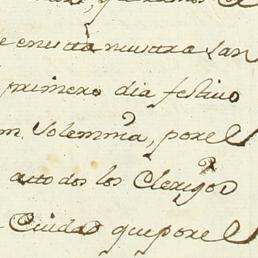 en esta nuestra San
primero dia festivo
Solemnia, por el
a todos los Clerigos
Ciudad que por el